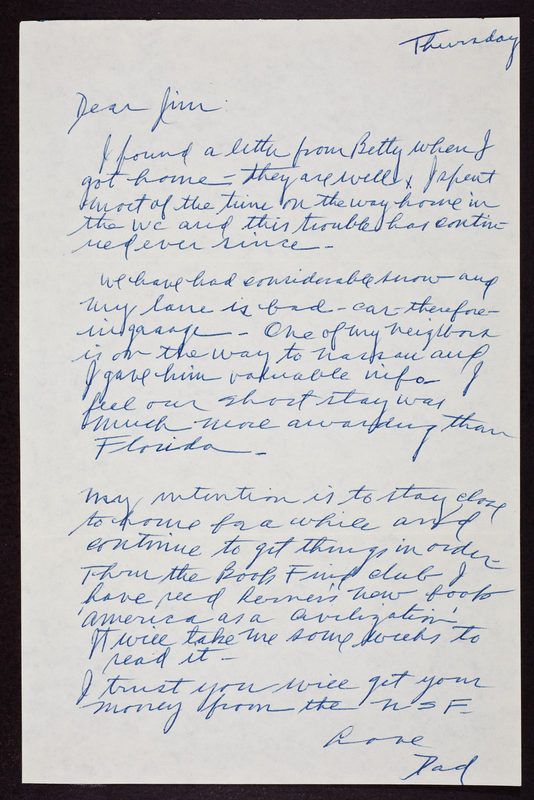 Thursday
Dear Jim:
I found a letter from Betty when I
got home - they are well & I spent
most of the time on the way home in
the wc and this trouble has contin-
ued ever since -
We have had considerable snow and
my lane is bad - car therefore
in garage - One of my neighbors
is on the way to Nassau and
I gave him valuable info - I
feel our short stay was
much more awarding than
Florida -
My intention is to stay close
to home for a while and
continue to get things in order -
Thru the Book Find club I
have rec'd Lerner's new book
'America as a Civilization'
It will take me some weeks to
read it -
I trust you will get your
money from the NSF -
Love
Dad